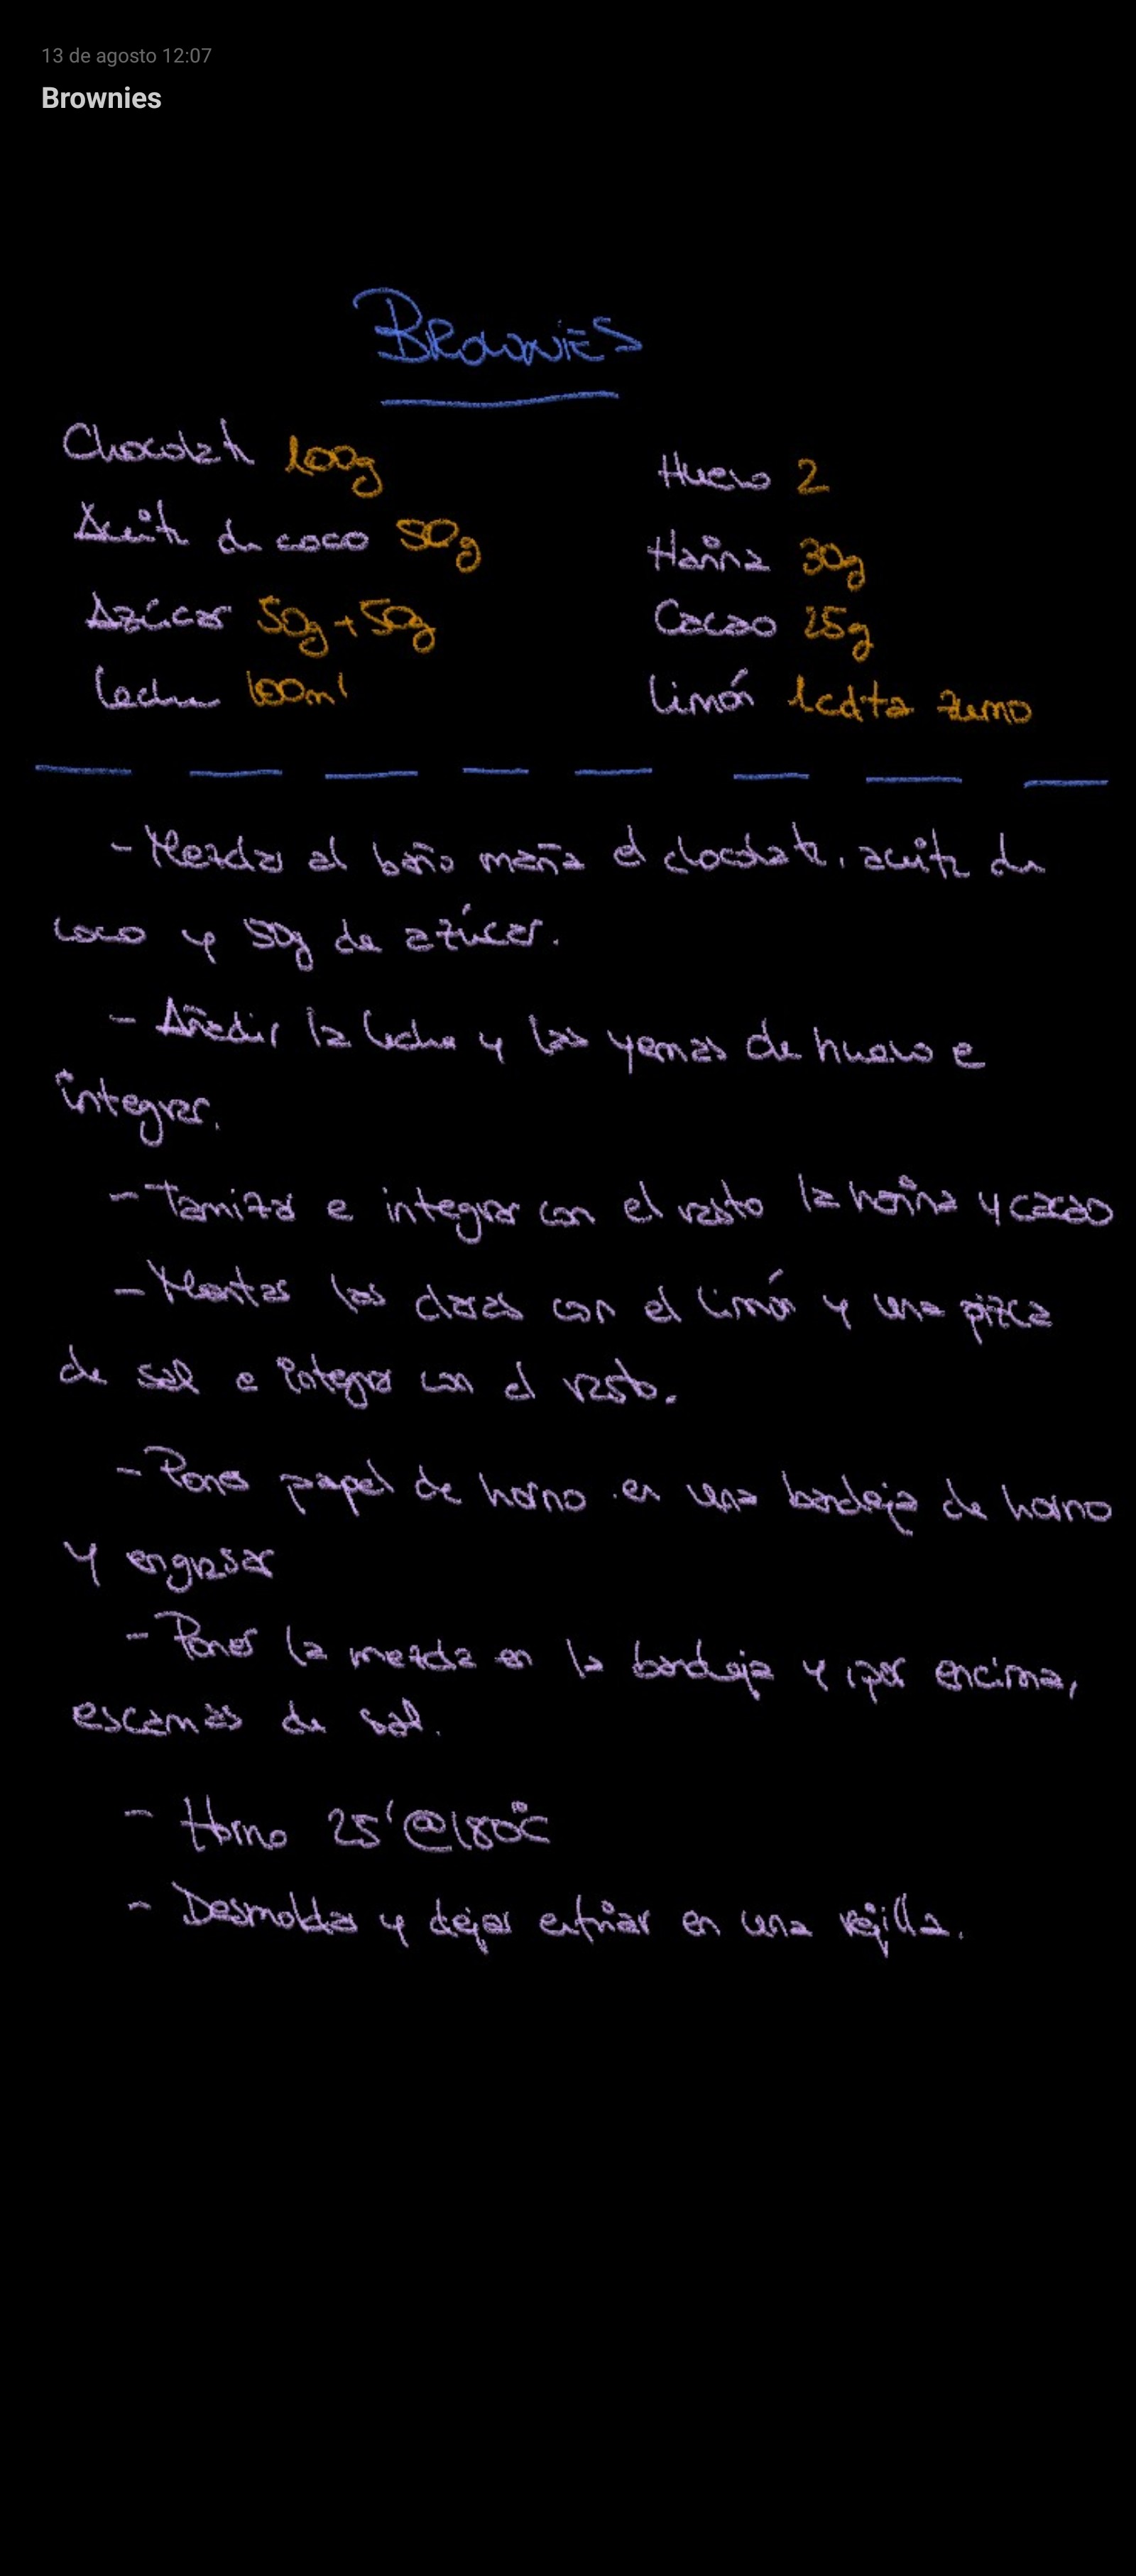 13 de agosto 12:07
Brownies
Brownies
Chocolate 100g
Huevo 2
Aceite de coco 50g
Harina 30g
Azúcar 50g + 50g
Cacao 25g
Leche 100ml
Limón 1cdta zumo
- Mezclar al baño maría el chocolate, aceite de
coco y 50g de azúcar.
- Añadir la leche y las yemas de huevo e
integrar.
- Tamizar e integrar con el resto la harina y cacao
- Montar las claras con el limón y una pizca
de sal e integrar con el resto.
- Poner papel de horno en una bandeja de horno
y engrasar
- Poner la mezcla en la bandeja y, por encima,
escamas de sal.
- Horno 25' @180°C
- Desmoldar y dejar enfriar en una rejilla.